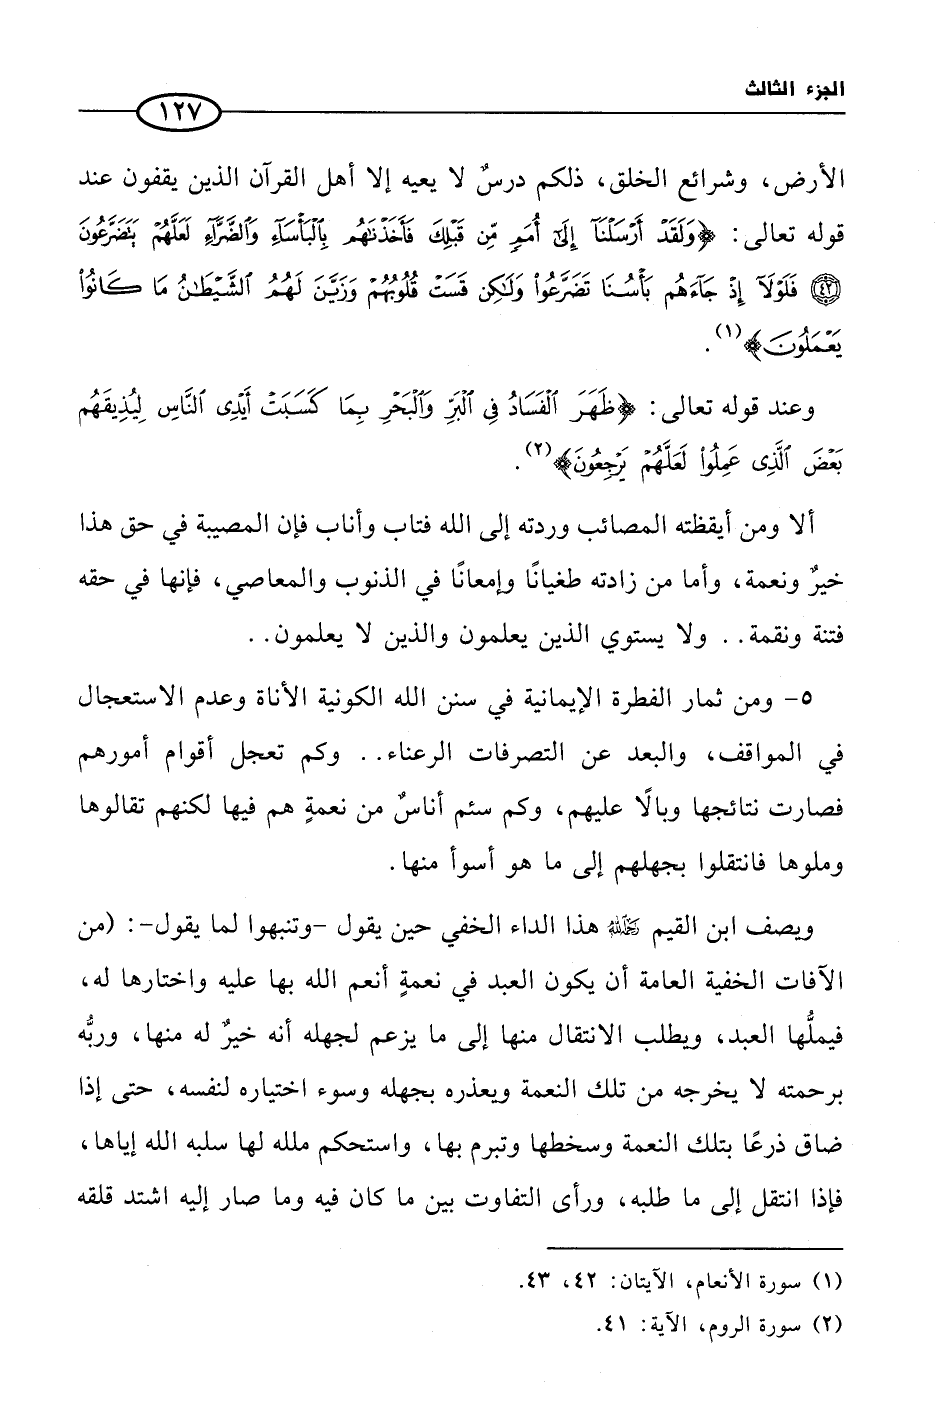 الجزء الثالث
١٢٧
الأرض، وشرائع الخلق، ذلكم درسٌ لا يعيه إلا أهل القرآن الذين يقفون عند
قوله تعالى: ﴿وَلَقَدۡ أَرۡسَلۡنَآ إِلَىٰٓ أُمَمٖ مِّن قَبۡلِكَ فَأَخَذۡنَٰهُم بِٱلۡبَأۡسَآءِ وَٱلضَّرَّآءِ لَعَلَّهُمۡ يَتَضَرَّعُونَ
٤٢ فَلَوۡلَآ إِذۡ جَآءَهُم بَأۡسُنَا تَضَرَّعُواْ وَلَٰكِن قَسَتۡ قُلُوبُهُمۡ وَزَيَّنَ لَهُمُ ٱلشَّيۡطَٰنُ مَا كَانُواْ
يَعۡمَلُونَ﴾(١).
وعند قوله تعالى: ﴿ظَهَرَ ٱلۡفَسَادُ فِي ٱلۡبَرِّ وَٱلۡبَحۡرِ بِمَا كَسَبَتۡ أَيۡدِي ٱلنَّاسِ لِيُذِيقَهُم
بَعۡضَ ٱلَّذِي عَمِلُواْ لَعَلَّهُمۡ يَرۡجِعُونَ﴾(٢).
ألا ومن أيقظته المصائب وردته إلى الله فتاب وأناب فإن المصيبة في حق هذا
خيرٌ ونعمة، وأما من زادته طغيانًا وإمعانًا في الذنوب والمعاصي، فإنها في حقه
فتنة ونقمة.. ولا يستوي الذين يعلمون والذين لا يعلمون..
٥- ومن ثمار الفطرة الإيمانية في سنن الله الكونية الأناة وعدم الاستعجال
في المواقف، والبعد عن التصرفات الرعناء.. وكم تعجل أقوام أمورهم
فصارت نتائجها وبالًا عليهم، وكم سئم أناسٌ من نعمةٍ هم فيها لكنهم تقالوها
وملوها فانتقلوا بجهلهم إلى ما هو أسوأ منها.
ويصف ابن القيم رحمه الله هذا الداء الخفي حين يقول -وتنبهوا لما يقول-: (من
الآفات الخفية العامة أن يكون العبد في نعمةٍ أنعم الله بها عليه واختارها له،
فيملُّها العبد، ويطلب الانتقال منها إلى ما يزعم لجهله أنه خيرٌ له منها، وربُّه
برحمته لا يخرجه من تلك النعمة ويعذره بجهله وسوء اختياره لنفسه، حتى إذا
ضاق ذرعًا بتلك النعمة وسخطها وتبرم بها، واستحكم ملله لها سلبه الله إياها،
فإذا انتقل إلى ما طلبه، ورأى التفاوت بين ما كان فيه وما صار إليه اشتد قلقه
(١) سورة الأنعام، الآيتان: ٤٢، ٤٣.
(٢) سورة الروم، الآية: ٤١.